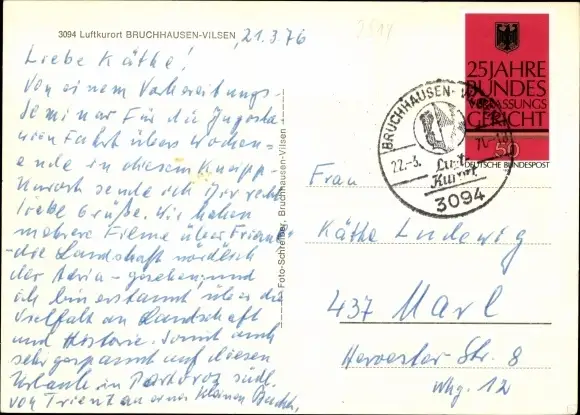 3094 Luftkurort BRUCHHAUSEN-VILSEN
21.3.76
Liebe Käthe!
Von einem Vorbereitungs-
seminar für die Jugosla-
wien Fahrt übers Wochen-
ende in diesem
sende ich Dir recht
liebe Grüße. Wir haben
mehrere Filme über Friaul
- die Landschaft nördlich
der Adria - gesehen, und
ich bin erstaunt über die
Vielfalt an Landschaft
und Historie. Somit auch
sehr gespannt auf diesen
Urlaub in Portoroz südl.
von Triest an einer kleinen Bucht,
Foto-Schreiber, Bruchhausen-Vilsen
25 JAHRE
BUNDES
VERFASSUNGS
GERICHT
50
DEUTSCHE BUNDESPOST
BRUCHHAUSEN-
22.-3.
Luft
Kurort
3094
Frau
Käthe Ludewig
437 Marl
Hervester Str. 8
Whg. 12